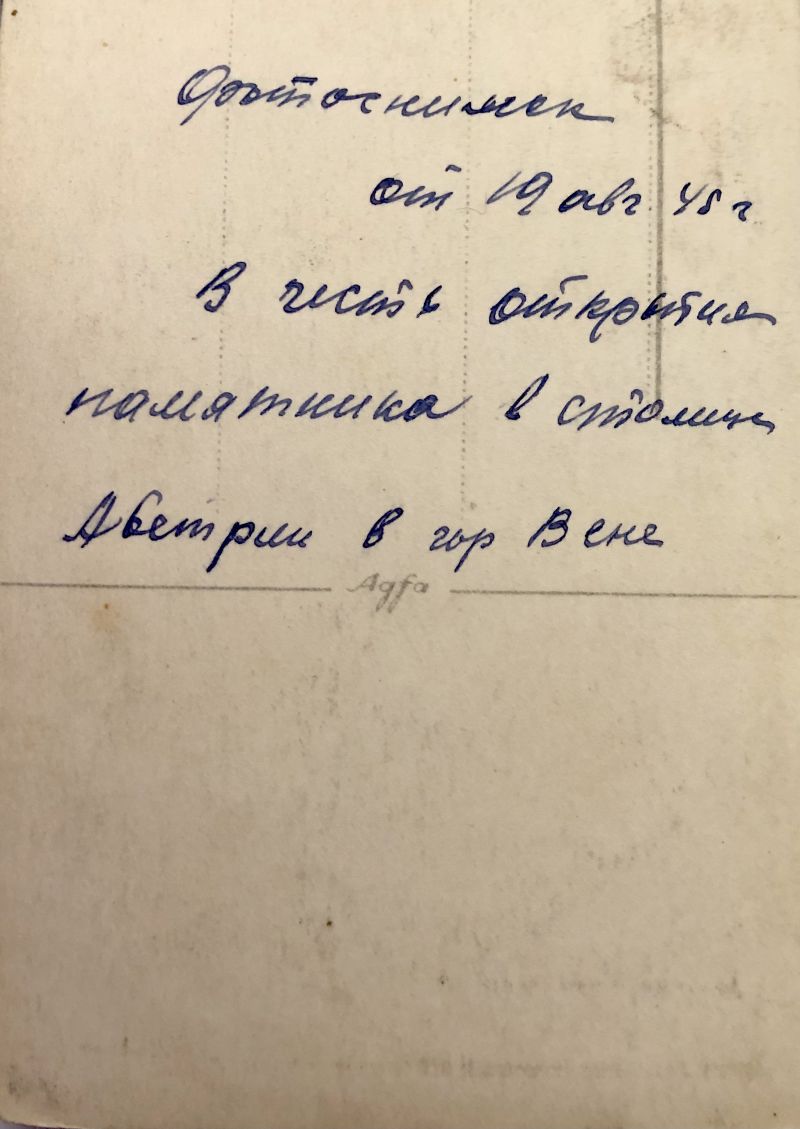 Фотоснимок
от 19 авг. 45 г
В честь открытия
памятника в столице
Австрии в гор Вене
Agfa